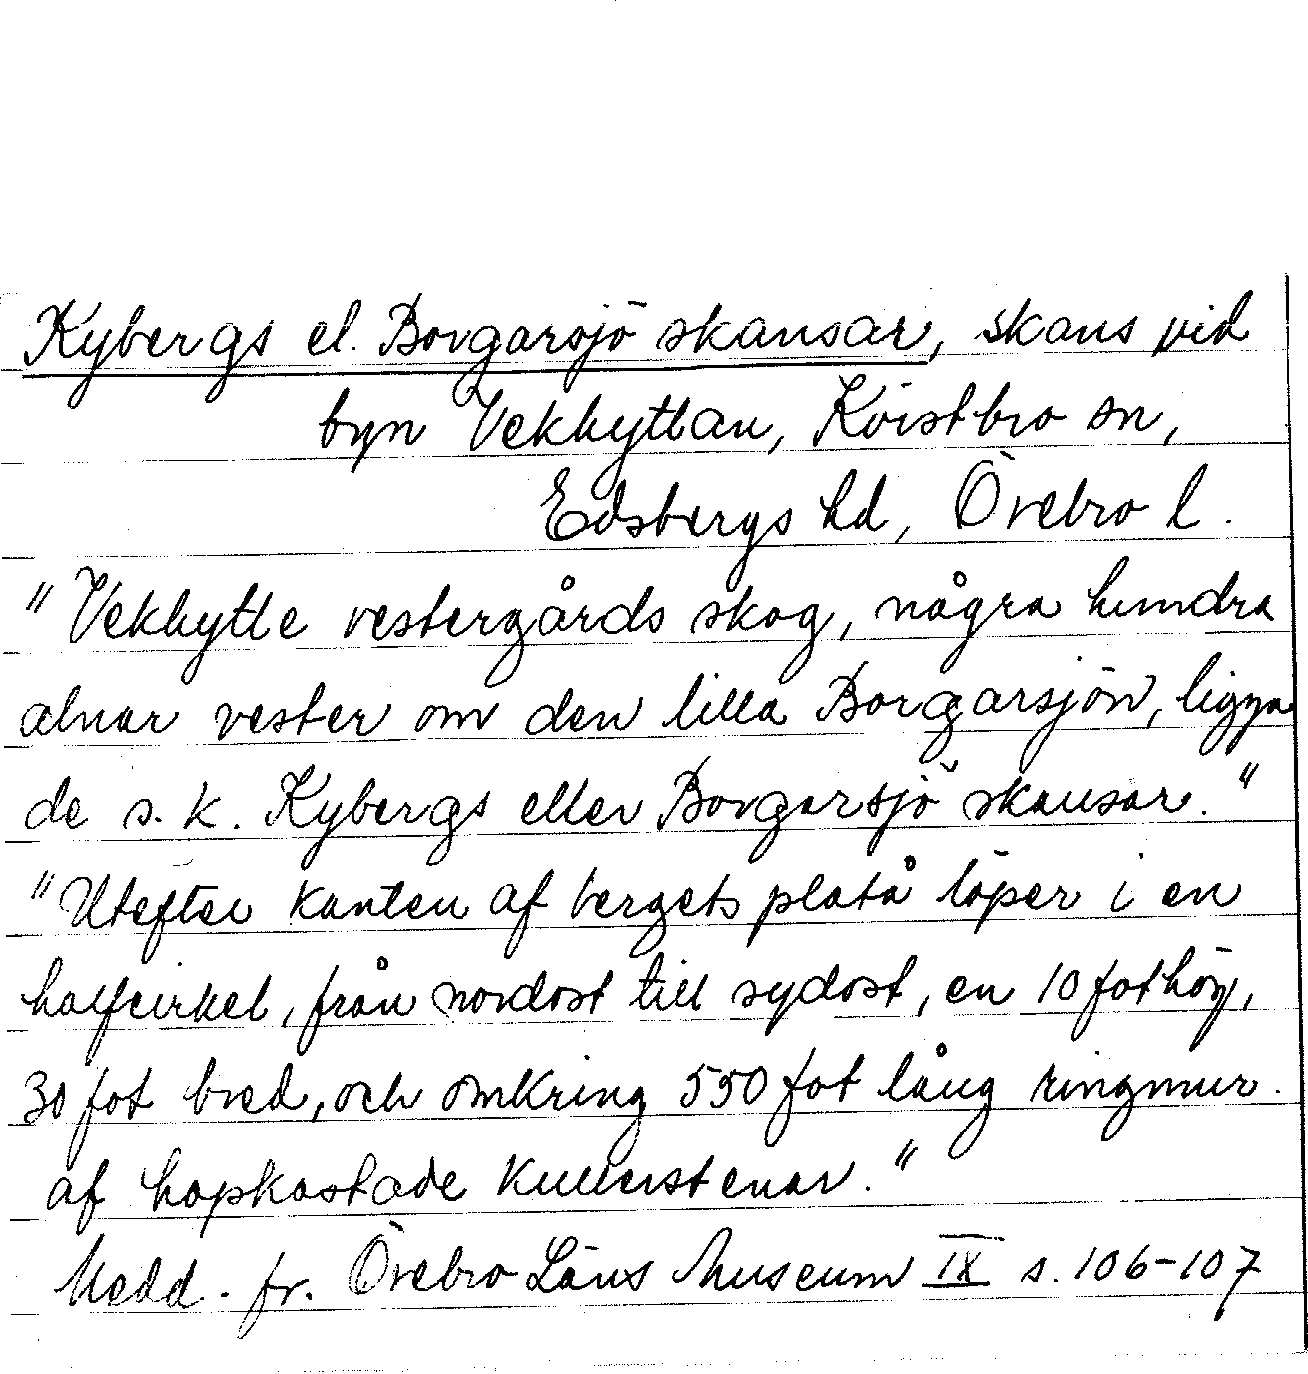 Kybergs el. Borgarsjö skansar, skans vid
byn Vekhyttan, Kvistbro sn,
Edsbergs hd, Örebro l.
"Vekhytte vestergårds skog, några hundra
alnar vester om den lilla Borgarsjön, ligga
de s.k. Kybergs eller Borgarsjö skansar."
"Utefter kanten af bergets platå löper i en
halfcirkel, från nordost till sydost, en 10 fot hög,
30 fot bred, och omkring 550 fot lång ringmur
af hopkastade kullerstenar."
Medd. fr. Örebro Läns Museum IX s. 106-107